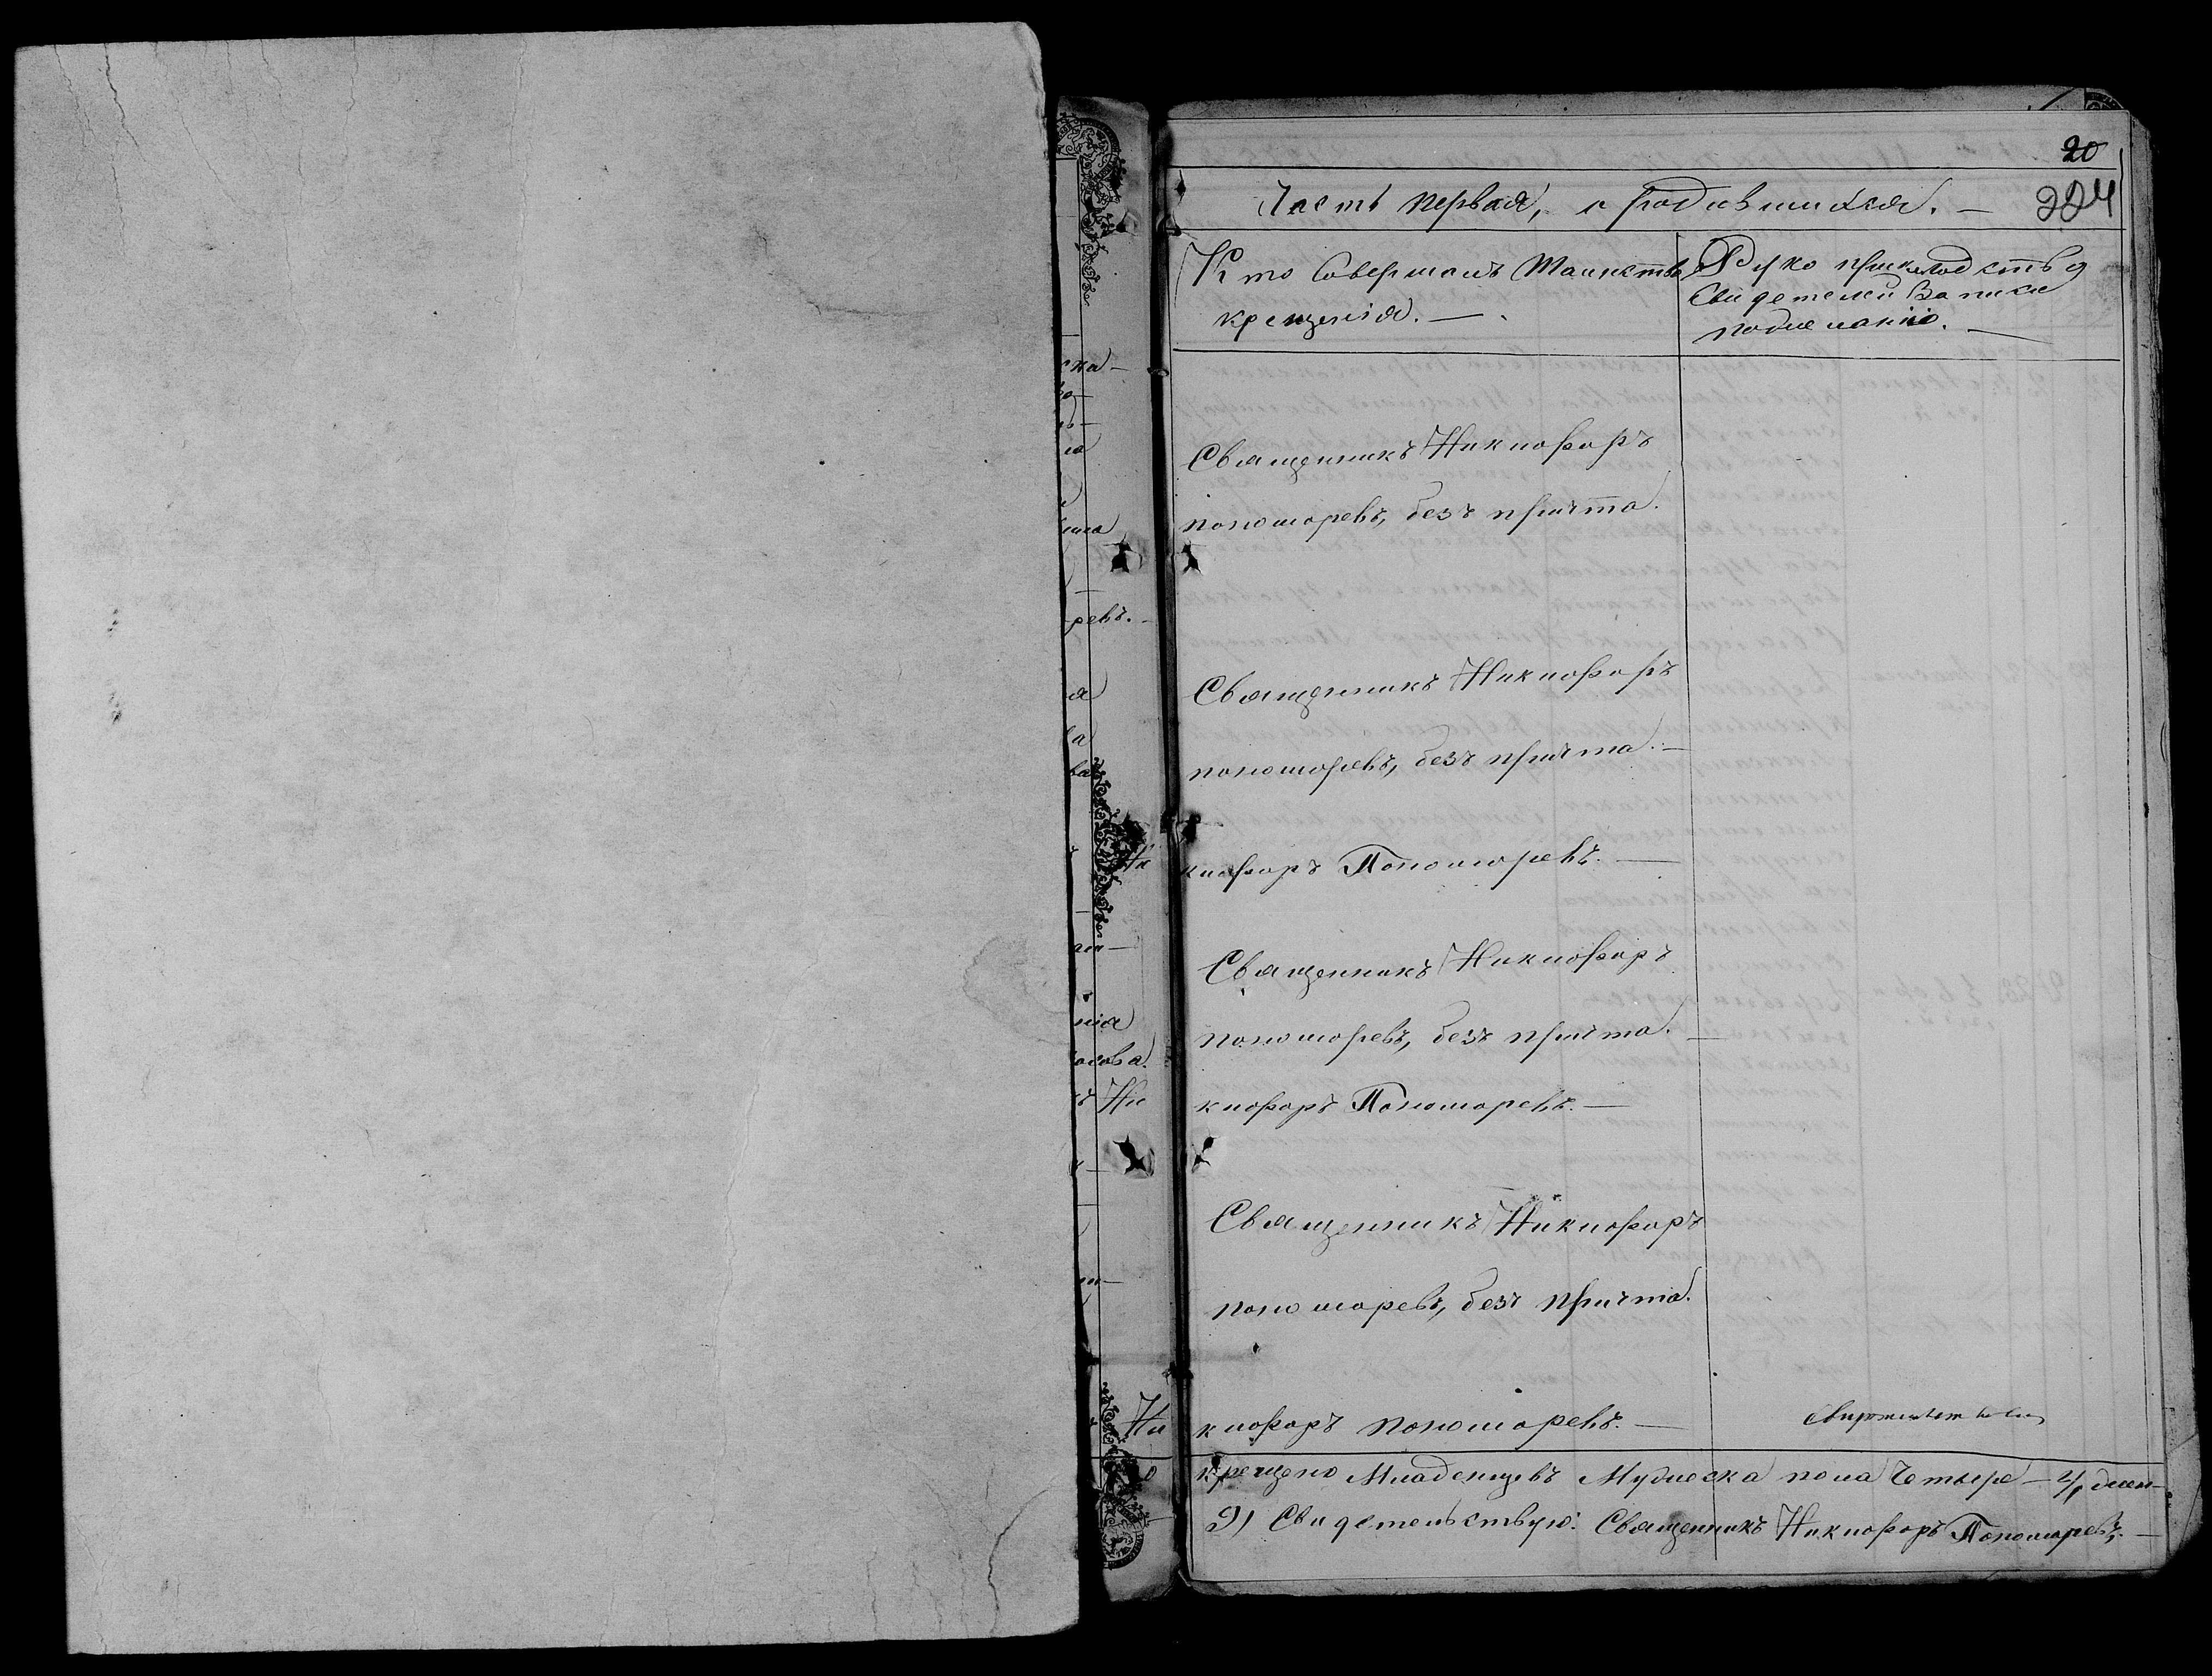 20
Часть первая, о родившихся. — 224
Кто Совершалъ Таинство
крещенія. —
Руко прикладство
Свидетелей Записи
по желанію. —
ска —
ревъ. —
Священникъ Никифоръ
пономоревъ, безъ причта.
Священникъ Никифоръ
пономоревъ, безъ причта. —
Ни кифоръ Пономоревъ. —
Священникъ Никифоръ
пономоревъ, безъ причта. —
ъ Ни кифоръ Пономоревъ. —
Священникъ Никифоръ
пономоревъ, безъ причта.
Ни кифоръ пономоревъ. —
крещено Младенцевъ Мужеска пола Четыре — 4, жен —
9) Свидетельствую: Священникъ Никифоръ Пономоревъ. —